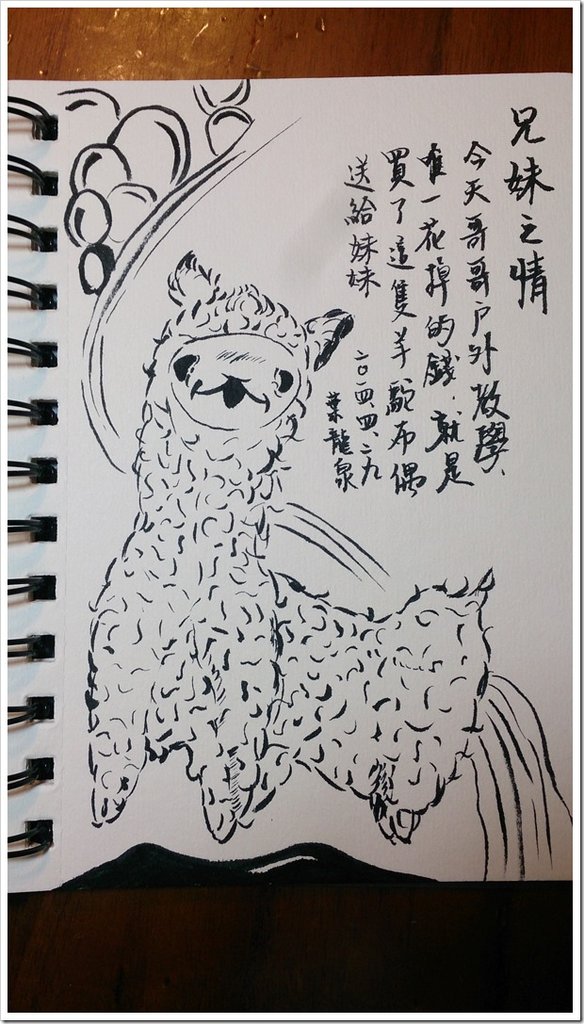 兄妹之情
今天哥哥戶外教學、
唯一花掉的錢．就是
買了這隻羊駝布偶
送給妹妹
二〇一四、四、二九
葉龍泉